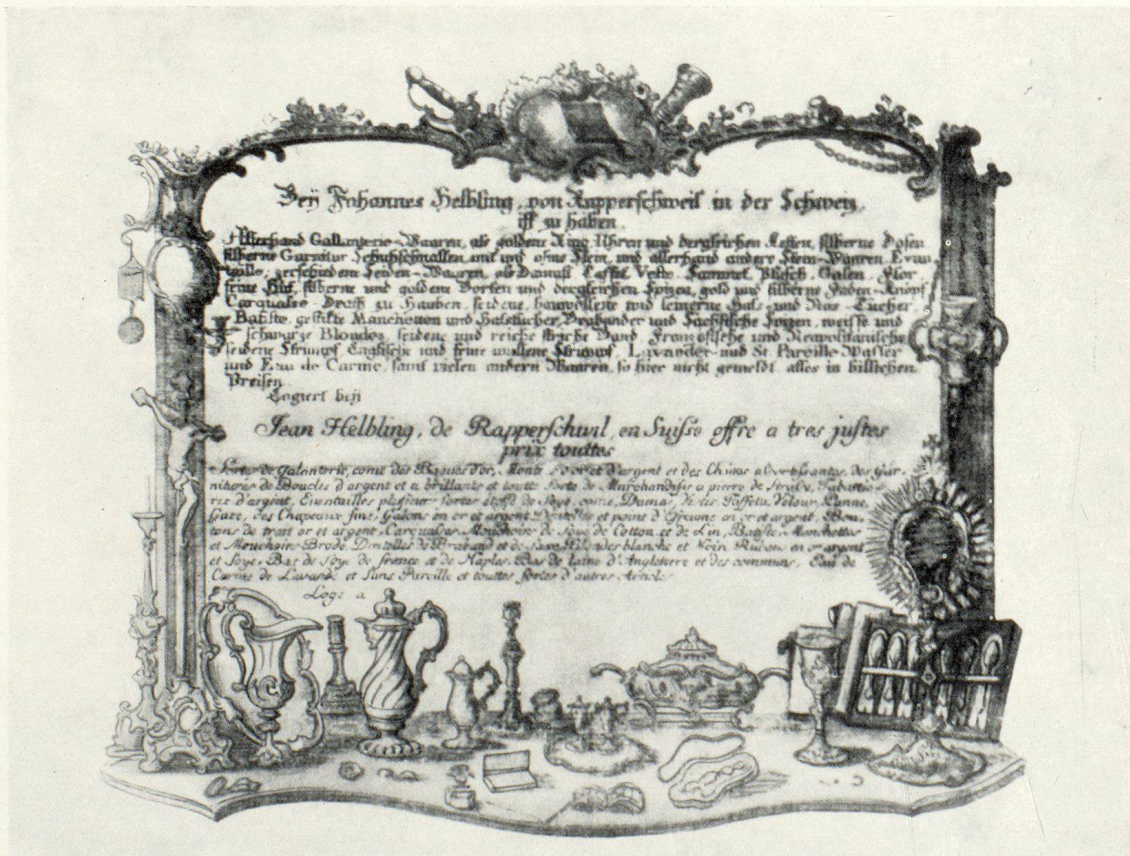 Beÿ Johannes Helbling, von Rapperschweil in der Schweiz,
ist zu haben.
Allerhand Gallanterie-Waaren, als goldene Ring Uhren und dergleichen Ketten, silberne Dosen
silberne Garnitur Schuhschnallen mit und ohne Stein, und allerhand andere Stein-Waaren
verschiedene Seiden-Waaren, als Damast Taffet Sammet, Plüsch, Flor
feine Hüt, silberne und goldene Borten und dergleichen Spizen, gold und silberne Knöpf
zu Hauben, seidene, baumwollene und leinerne Hals- und Nas-Tücher
Batiste, Manchetten und Halstücher, Brabander und Sächsische Spizen, weisse und
schwarze Blondes, seidene und reiche Band, Französische und Neapolitanische
seidene Strümpf, Englische und feine wollene Strümpf, Lavander- und St. Pareille Wasser
und Eau de Carme, samt vielen andern Waaren, so hier nicht gemeldt alles in billichen
Preisen
Logiert beÿ
Jean Helbling, de Rapperschwil, en Suisse offre a tres justes
prix touttes
Sorte de Galanterie, come des Bagues d'or, Montr d'or et d'argent et des Chines des Gar-
nitures de Boucles d'argent et a brillants et toutte Sorte de Marchandises a pierre de Strass,
rie d'argent, Eventailles plusieur Sortes de Soye, come, Damas, Taffeta, Velour,
Gaze, des Chapeaux fins, Galons en or et argent Dentelles et point d'Espagne en or et argent, Bou-
tons de trait or et argent, Mouchoirs de Soye de Cotton et de Lin, Batiste, Manchettes
et Mouchoirs Brodé, Dentelles de Brabant et de Saxe Blondes blanche et Noir Ruban en or argent
et Soye, Bas de Soye de france et de Naples, Bas de laine d'Angleterre et des communs, Eau de
Carme de Lavande et Sans Pareille et touttes sortes d'autres
Loge a